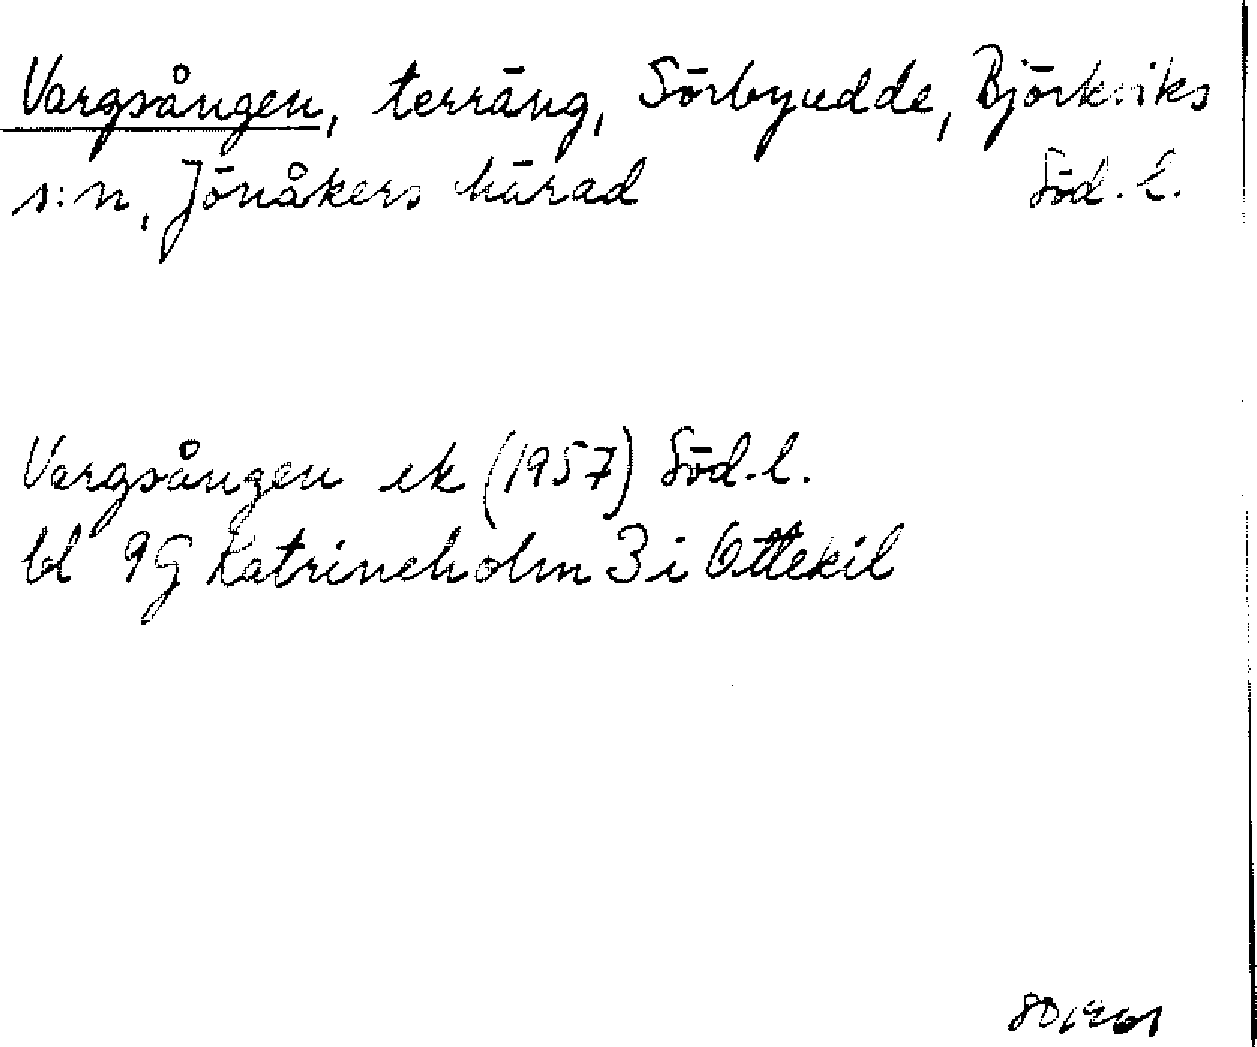 Vargsången, terräng, Sörbyudde, Björkviks
s:n, Jönåkers härad Söd. l.
Vargsången ek (1957) Söd. l.
bl 9G Katrineholm 3i Ottekil
SD 1961